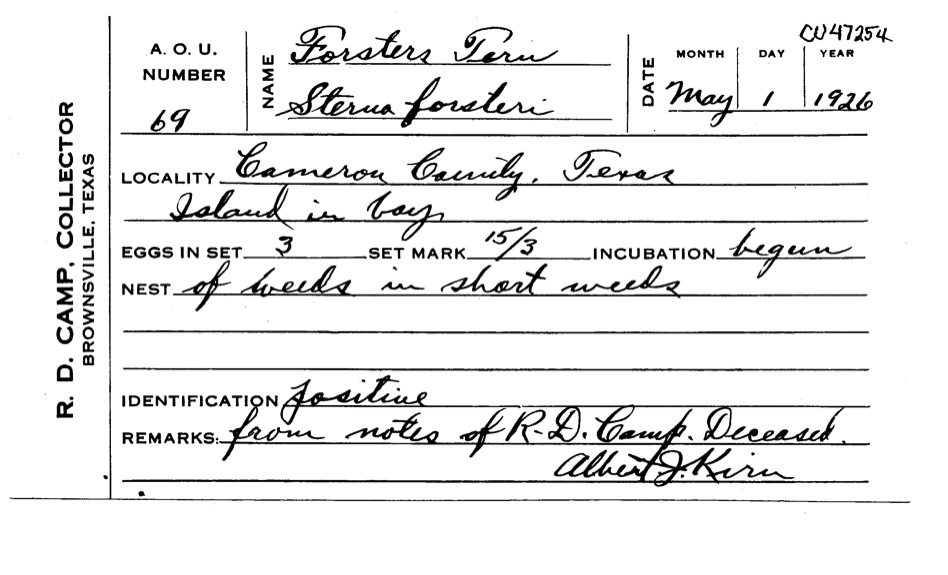 CU47254
R. D. CAMP, COLLECTOR
BROWNSVILLE, TEXAS
A. O. U. NUMBER 69
NAME Forsters Tern
Sterna forsteri
DATE MONTH DAY YEAR
May 1 1926
LOCALITY Cameron County, Texas
Island in bay
EGGS IN SET 3 SET MARK 15/3 INCUBATION begun
NEST of weeds in short weeds
IDENTIFICATION positive
REMARKS: from notes of R.D. Camp. Deceased.
Albert J. Kirn